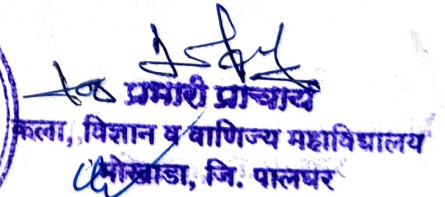 प्रभारी प्राचार्य
कला, विज्ञान व वाणिज्य महाविद्यालय
मोखाडा, जि. पालघर